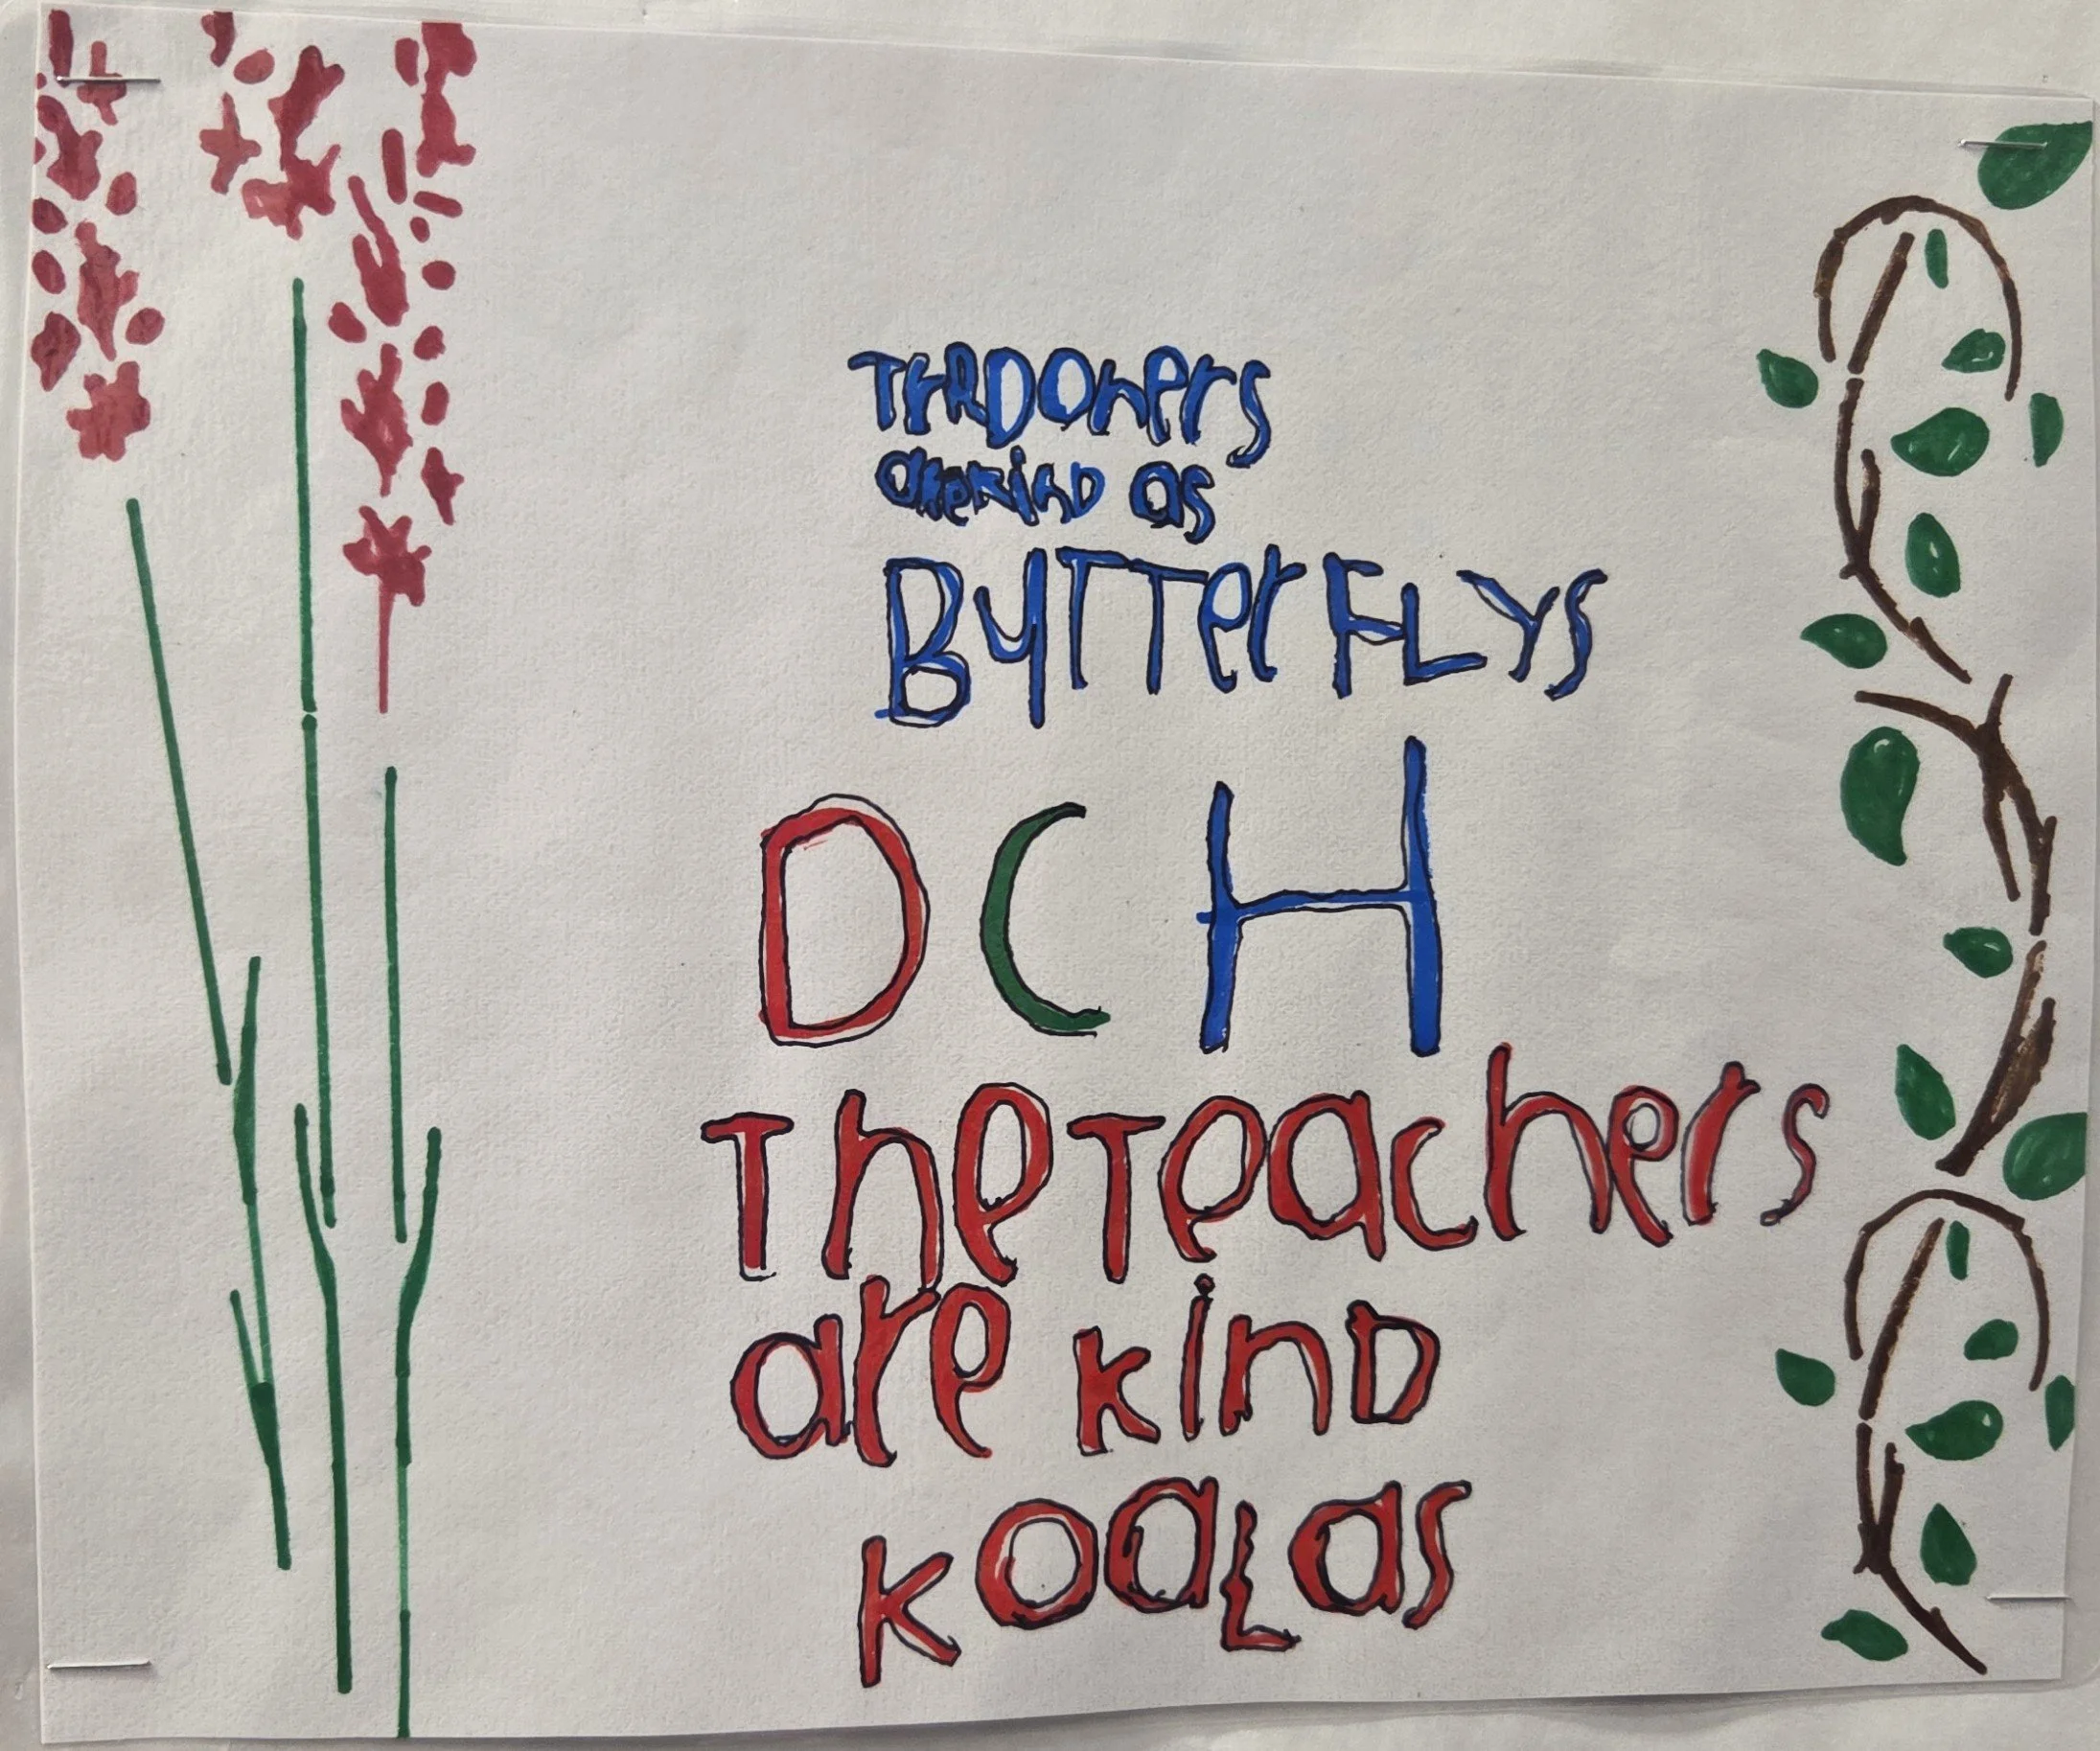 TerDOners
are kinD as
ByTTerFLYs
DCH
The Teachers
are kinD
KoaLas